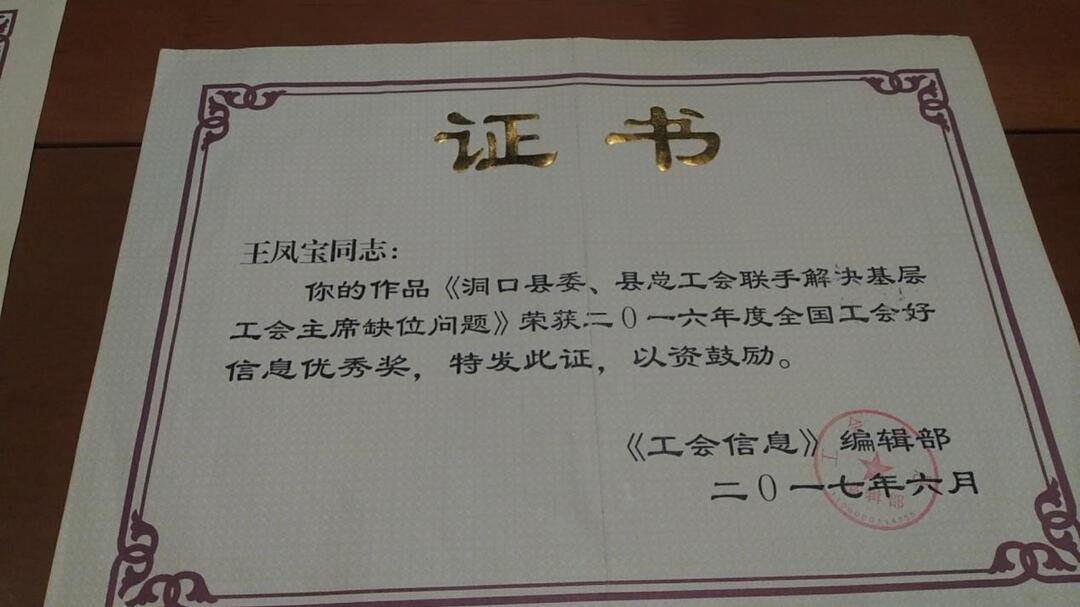 证书
王凤宝同志：
你的作品《洞口县委、县总工会联手解决基层
工会主席缺位问题》荣获二0一六年度全国工会好
信息优秀奖，特发此证，以资鼓励。
《工会信息》编辑部
二0一七年六月